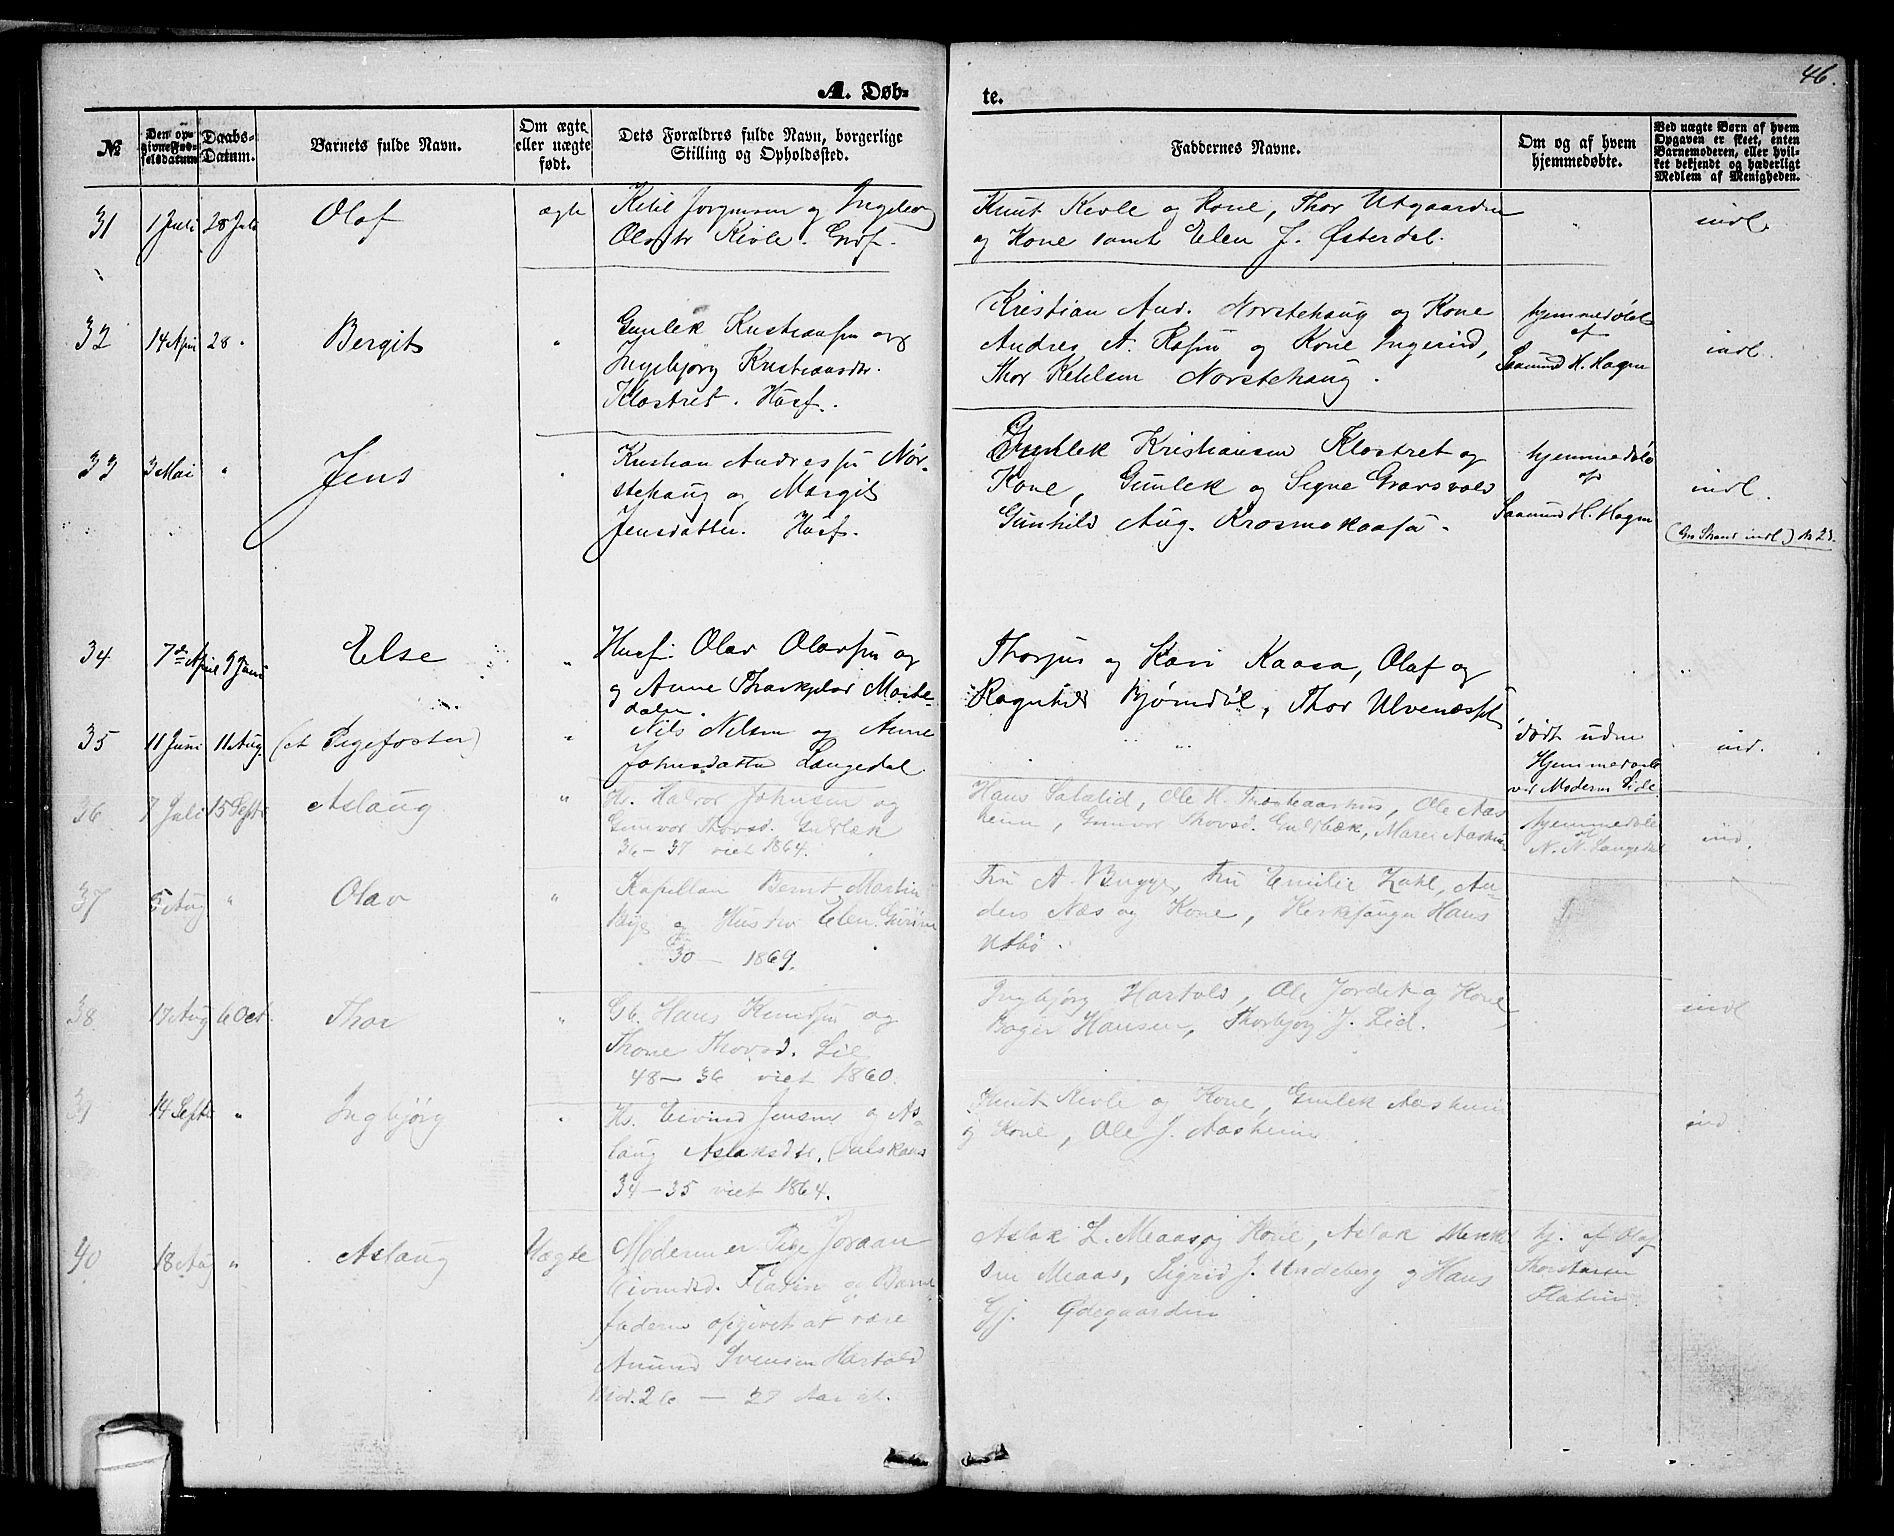 46.
A. Døb-
te.
№
Den op-
givne Fød-
selsdatum
Daabs-
Datum.
Barnets fulde Navn.
Om ægte
eller uægte
født.
Dets Forældres fulde Navn, borgerlige
Stilling og Opholdssted.
Faddernes Navne.
Om og af hvem
hjemmedøbte.
Ved uægte Børn af hvem
Opgaven er skeet, enten
Barnemoderen, eller hvil-
ket bekjendt og hæderligt
Medlem af Menigheden.
31 1 Juli 28 Juli Olaf ægte
Ketil Jorgensen og Ingeborg
Olavdtr Kivle.
Knut Kivle og Kone, Thor Utgaarden
og Kone samt Elen J. Østerdal.
indl.
32 14 April 28 " Bergit "
Gunlek Kristiansen og
Ingebjørg Kristiansdtr.
Klostret. Husf.
Kristian And. Norstehaug og Kone
Andres A. og Kone Ingerid,
Thor Ketilsen Norstehaug.
hjemmedøbt
af
Saamund H. Hagen
indl.
33 3 Mai " Jens "
Kristian Andresen Nor-
stehaug og Margit
Jensdatter. Husf.
Gunlek Kristiansen Klostret og
Kone, Gunlek og Signe Graasvold
Gunhild Aug. Krosmokaasa.
hjemmedøbt
af
Saamund H. Hagen
indl.
34 7de April 9 Juni Else "
Husf. Olav Olavsen og
og Anne
dalen.
Thorjus og Kari Kaasa, Olaf og
Ragnhild Bjørndøl, Thor
35 11 Juni 11 Aug. (et Pigefoster) "
Nils Nilsen og Anne
Johnsdatter Langedal.
født uden
Hjemmedaab
ved Moderens Side.
ind.
36 7 Juli 15 Septr Aslaug "
Hs. Halvor Johnsen og
Gunvor Thovsd. Guldbæk
36 – 37 viet 1864.
Hans Sataslid, Ole H. Ole Aas-
heim, Gunvor Thovsd. Guldbæk, Maren
hjemmedøbt
N. N. Langedal
ind.
37 5 Aug " Olav "
Kapellan Bernt Martin
og Hustru Elen
30 – 1869.
Fru A. Bugge, Fru Emilie Zahl, An-
ders Næs og Kone, Kirkesanger Hans
Utbø.
38 17 Aug 6 Oct Thor "
Gb. Hans Knudsen og
Thone Thovsd. Lie
48 – 36 viet 1860.
Ingbjørg Hartold, Ole Jordet og Kone,
Hansen, Thorbjørg J. Lid.
indl
39 14 Septr " Ingbjørg "
Hs. Eivind Jensen og As-
laug Aslaksdtr.
34 – 35 viet 1864.
Knut Kivle og Kone, Gunlek Aasheim
og Kone, Ole J. Aasheim
ind.
40 18 Aug " Aslaug Uægte
Moderen er Pige Joraan
Eivindsd. Flatin og Barne-
faderen opgivet at være
Amund Svensen Hartold
Mod. 26 – 27 Aar gl.
Aslak L. Meaas og Kone, Aslak
sen Meaas, Sigrid J. Undeberg og Hans
Gj. Ødegaarden
hj. af Olaf
Thorstensen
Flatin